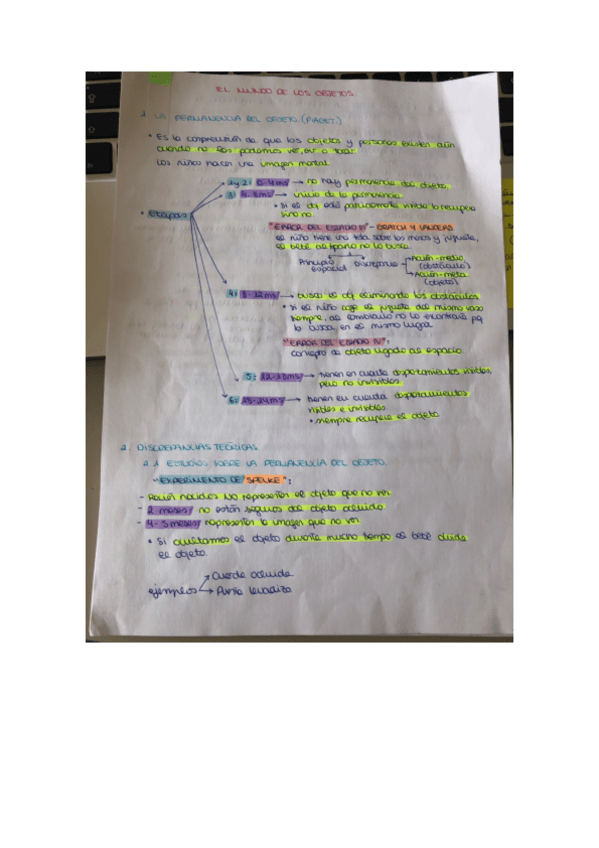 EL MUNDO DE LOS OBJETOS.
1. LA PERMANENCIA DEL OBJETO (PIAGET.)
• Es la comprensión de que los objetos y personas existen aún
cuando no los podamos ver, oír o tocar.
Los niños hacen una imagen mental.
• Etapas
1 y 2: 0-4ms → no hay permanencia del objeto,
3: 4-8ms → inicio de la permanencia
• si el obj está parcialmente visible lo recupera
sino no.
"ERROR DEL ESTADIO III" - GRATCH Y LANDERS
el niño tiene una tela sobre las manos y juguete,
el bebé al taparlo no lo busca.
Principio espacial
Discrepancia
Acción-medio (obstáculo)
Acción-meta (objeto)
4: 8-12ms → busca el obj eliminando los obstáculos
• si el niño coge el juguete del mismo vaso
siempre, al cambiarlo no lo encontrará pq
lo busca en el mismo lugar.
"ERROR DEL ESTADIO IV":
concepto de objeto ligado al espacio.
5: 12-18ms → tienen en cuenta desplazamientos visibles,
pero no invisibles.
6: 18-24ms → tienen en cuenta desplazamientos
visibles e invisibles.
• siempre recupera el objeto
2. DISCREPANCIAS TEÓRICAS.
2.1 ESTUDIOS SOBRE LA PERMANENCIA DEL OBJETO.
"EXPERIMENTO DE SPELKE":
- Recién nacidos no representan el objeto que no ven
- 2 meses/ no están seguros del objeto ocluido.
- 4-5 meses/ representan la imagen que no ven
• Si ocultamos el objeto durante mucho tiempo el bebé olvida
el objeto.
ejemplos
→ Cuerda ocluida
→ Puente levadizo